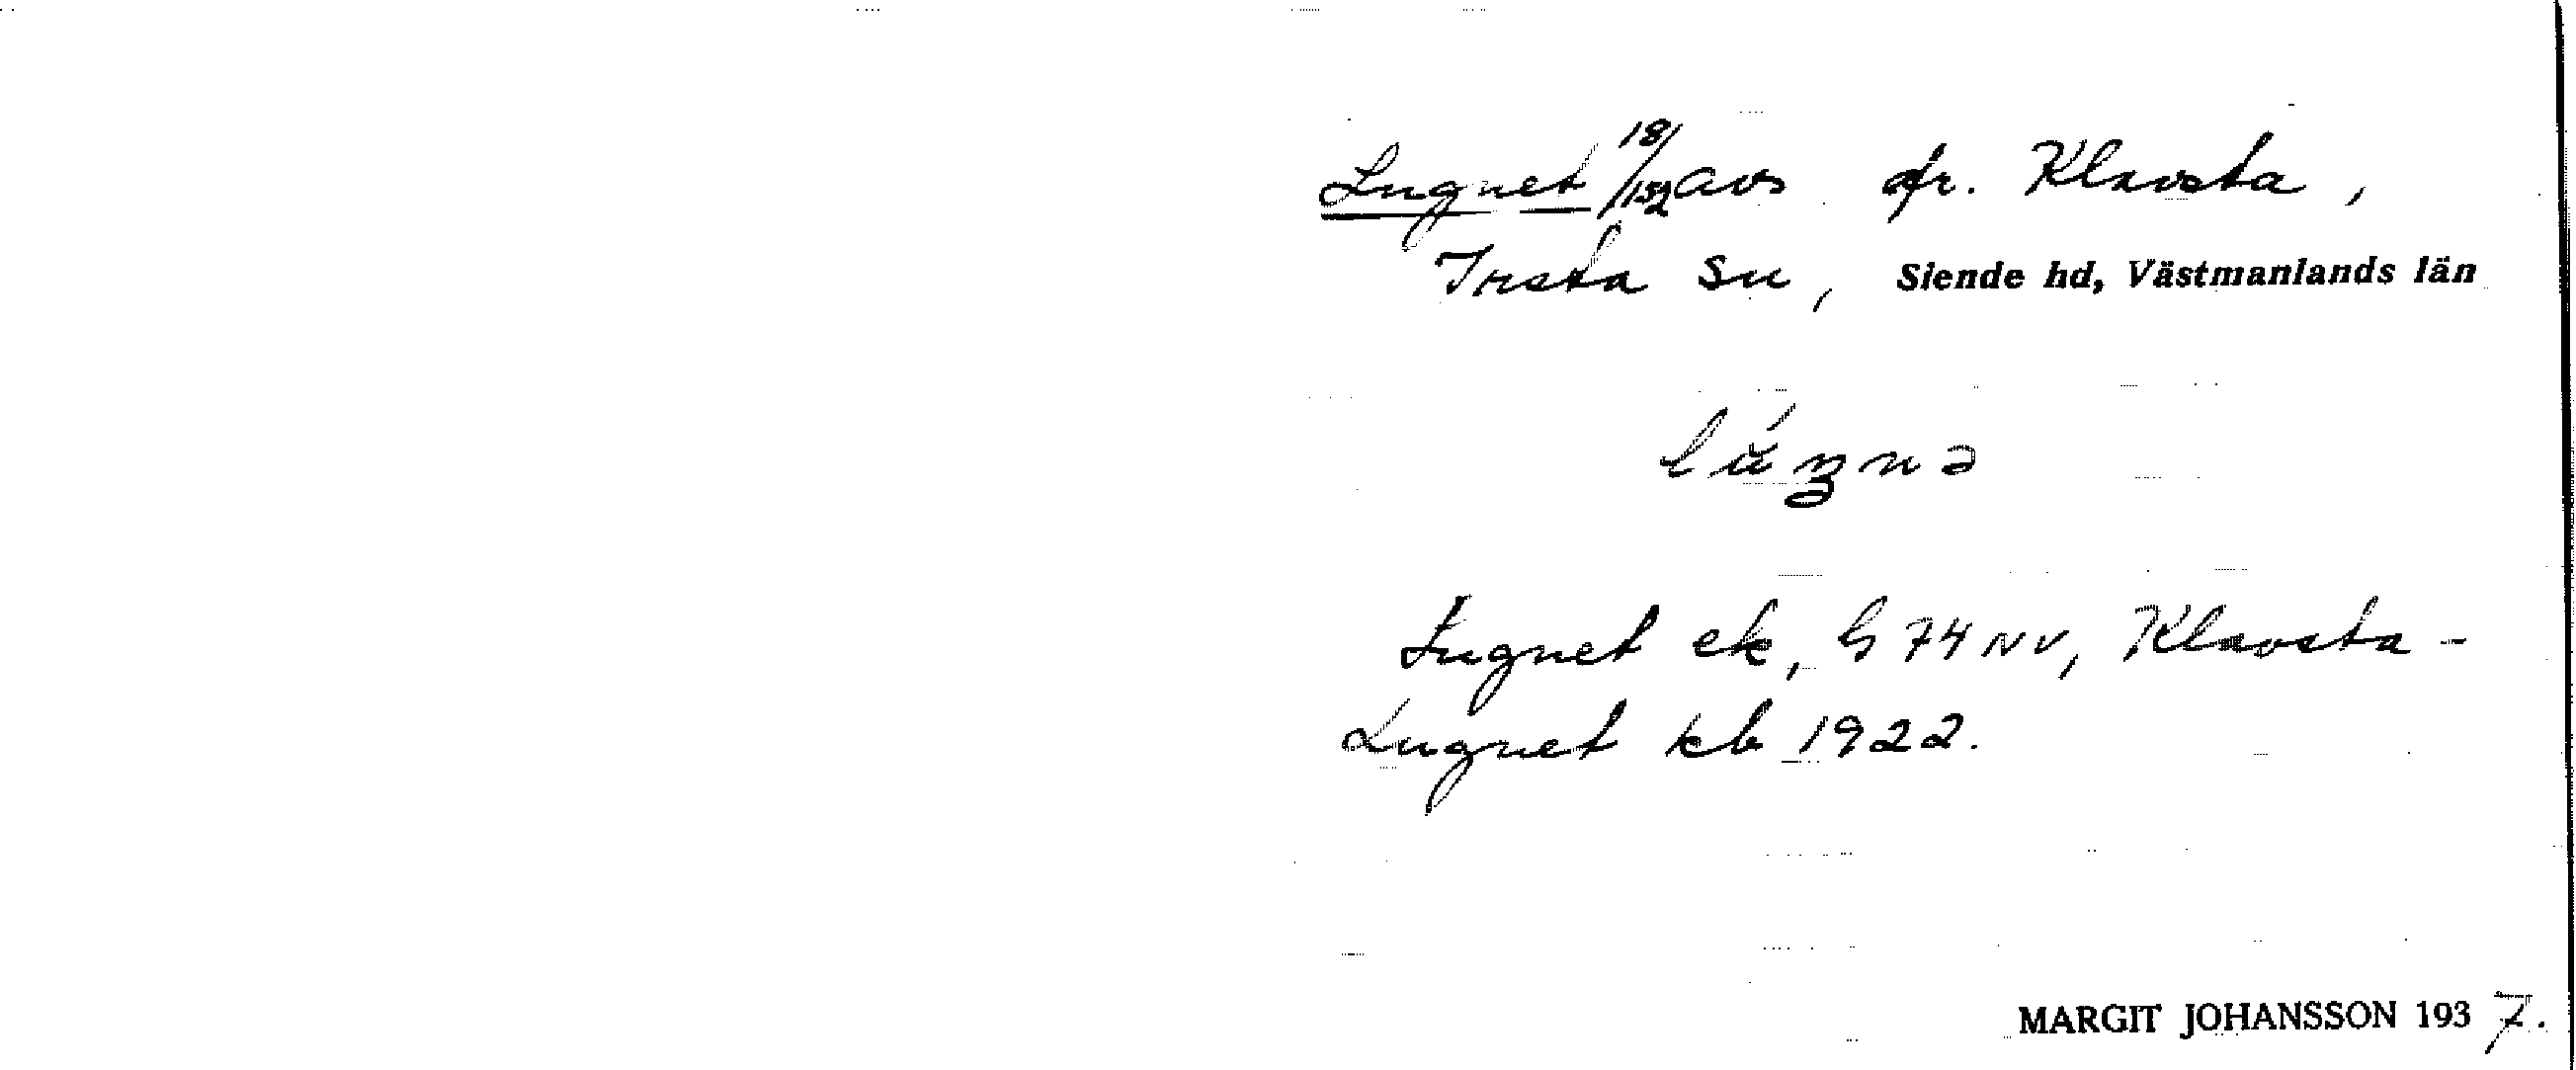 Lugnet 18/152 avs fr. Klavsta,
Irsta sn, Siende hd, Västmanlands län
lúŋnə
Lugnet ek, h 74 NV, Klavsta-
Lugnet kb 1922.
MARGIT JOHANSSON 1937.